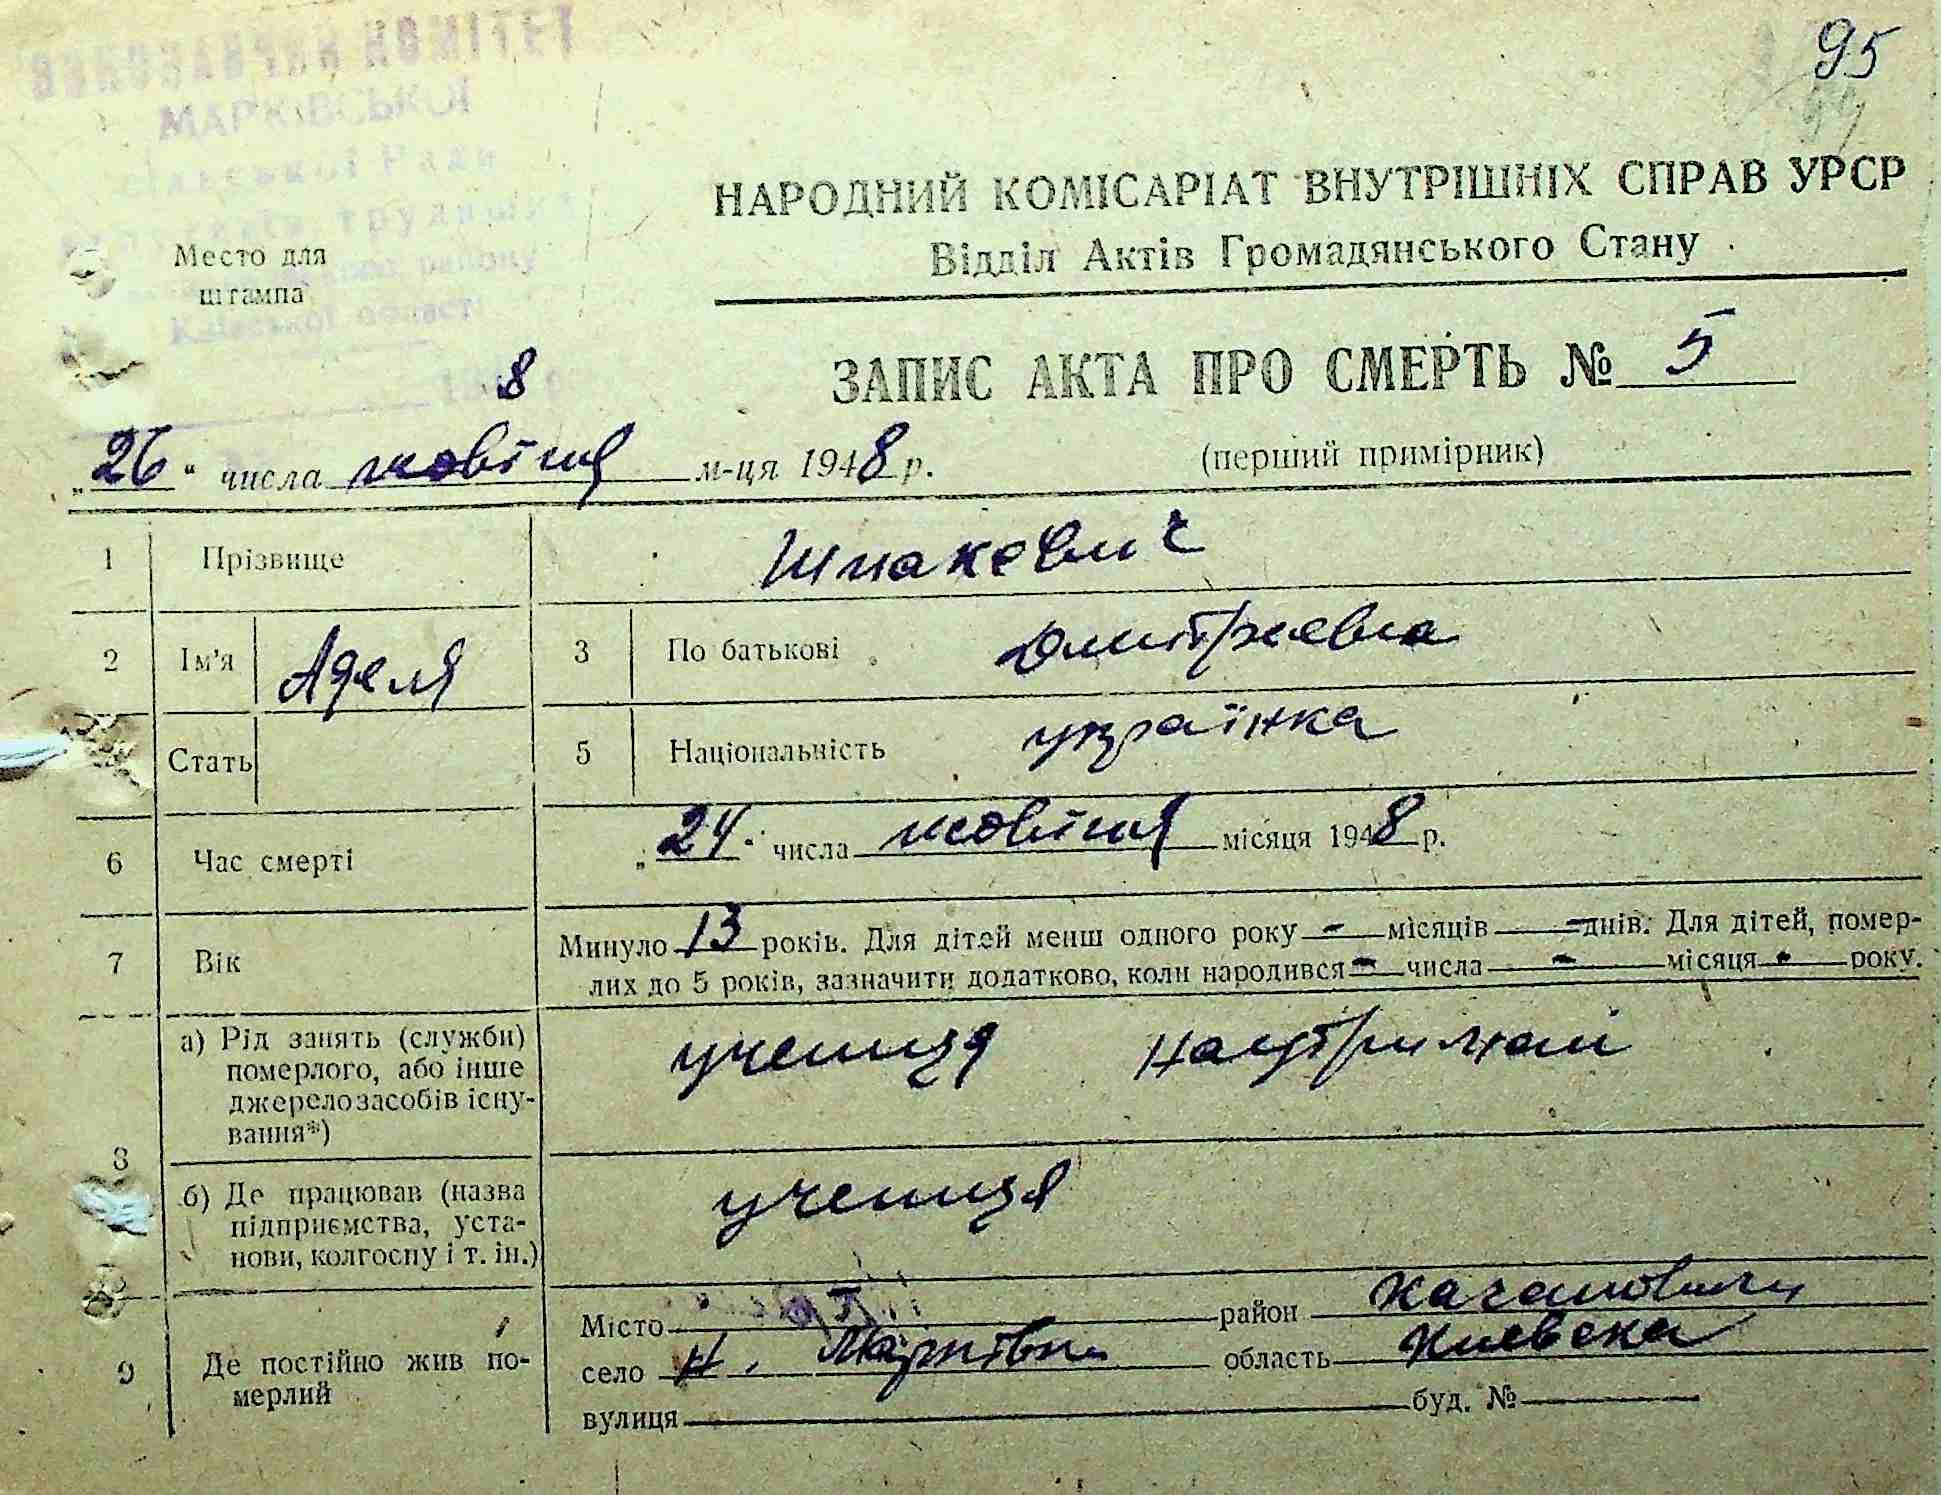 ВИКОНАВЧИЙ КОМІТЕТ
МАРКІВСЬКОЇ
сільської Ради
депутатів трудящих
району
Київської області
95
99
НАРОДНИЙ КОМІСАРІАТ ВНУТРІШНІХ СПРАВ УРСР
Відділ Актів Громадянського Стану
Место для
штампа
ЗАПИС АКТА ПРО СМЕРТЬ № 5
8
„26" числа жовтня м-ця 1948 р.
(перший примірник)
1 Прізвище Шпакевич
2 Ім'я Аделя 3 По батькові Дмитрєвна
Стать 5 Національність українка
6 Час смерті „24" числа жовтня місяця 1948 р.
7 Вік Минуло 13 років. Для дітей менш одного року - місяців - днів. Для дітей, помер-
лих до 5 років, зазначити додатково, коли народився - числа - місяця - року.
8 а) Рід занять (служби)
померлого, або інше
джерело засобів існу-
вання*)
учениця на утримані
б) Де працював (назва
підприємства, уста-
нови, колгоспу і т. ін.)
учениця
9 Де постійно жив по-
мерлий
Місто район
село Н. Марківка область Киевска
вулиця буд. №